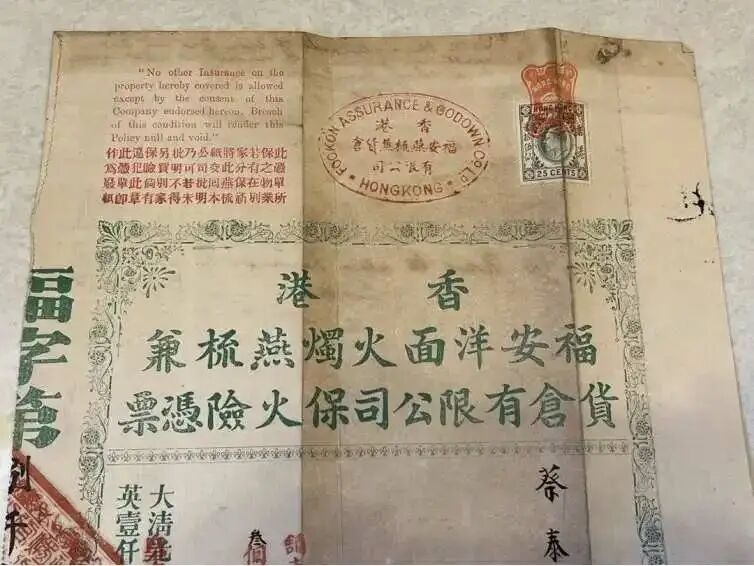 "No other Insurance on the
property hereby covered is allowed
except by the consent of this
Company endorsed hereon. Breach
of this condition will render this
Policy null and void."
此憑單所
保之物業
若有在別
家分保須
將此燕梳
紙交回本
公司批明
乃可若未
批明不得
另買別家
保險倘有
違犯此章
此憑單即
作為廢紙
FOOKON ASSURANCE & GODOWN CO LD
香港
福安燕梳兼貨倉
有限公司
HONGKONG
25 CENTS
香港
福安洋面火燭燕梳兼
貨倉有限公司保火險憑票
福字第
蔡泰
大清
英壹仟